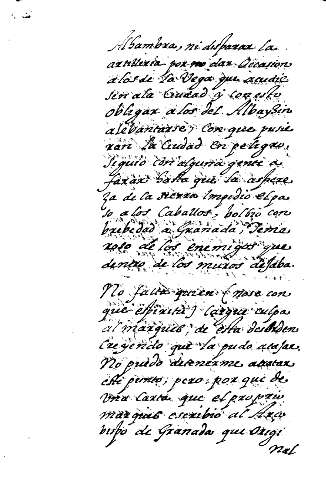 Alhambra, ni disparar la
artilleria por no dar Occasion
a los de la Vega que acudie
sen a la Ciudad y con esto
obligar a los del Albaysin
a levantarse, con que pusie
ran la Ciudad en peligro,
siguio con alguna gente a
farax hasta que la aspere
za de la sierra impedio el pa
so a los Caballos, bolbio con
brebedad a Granada, Teme
roso de los enemigos que
dentro de los muros dejaba.
No falta quien (no se con
que espiritu) cargue culpa
al marques, de esta desorden
creyendo que la pudo atajar.
No puedo detenerme a tratar
este punto; pero, por que de
una Carta que el proprio
marques escribio al Arço
bispo de Granada que Origi
nal